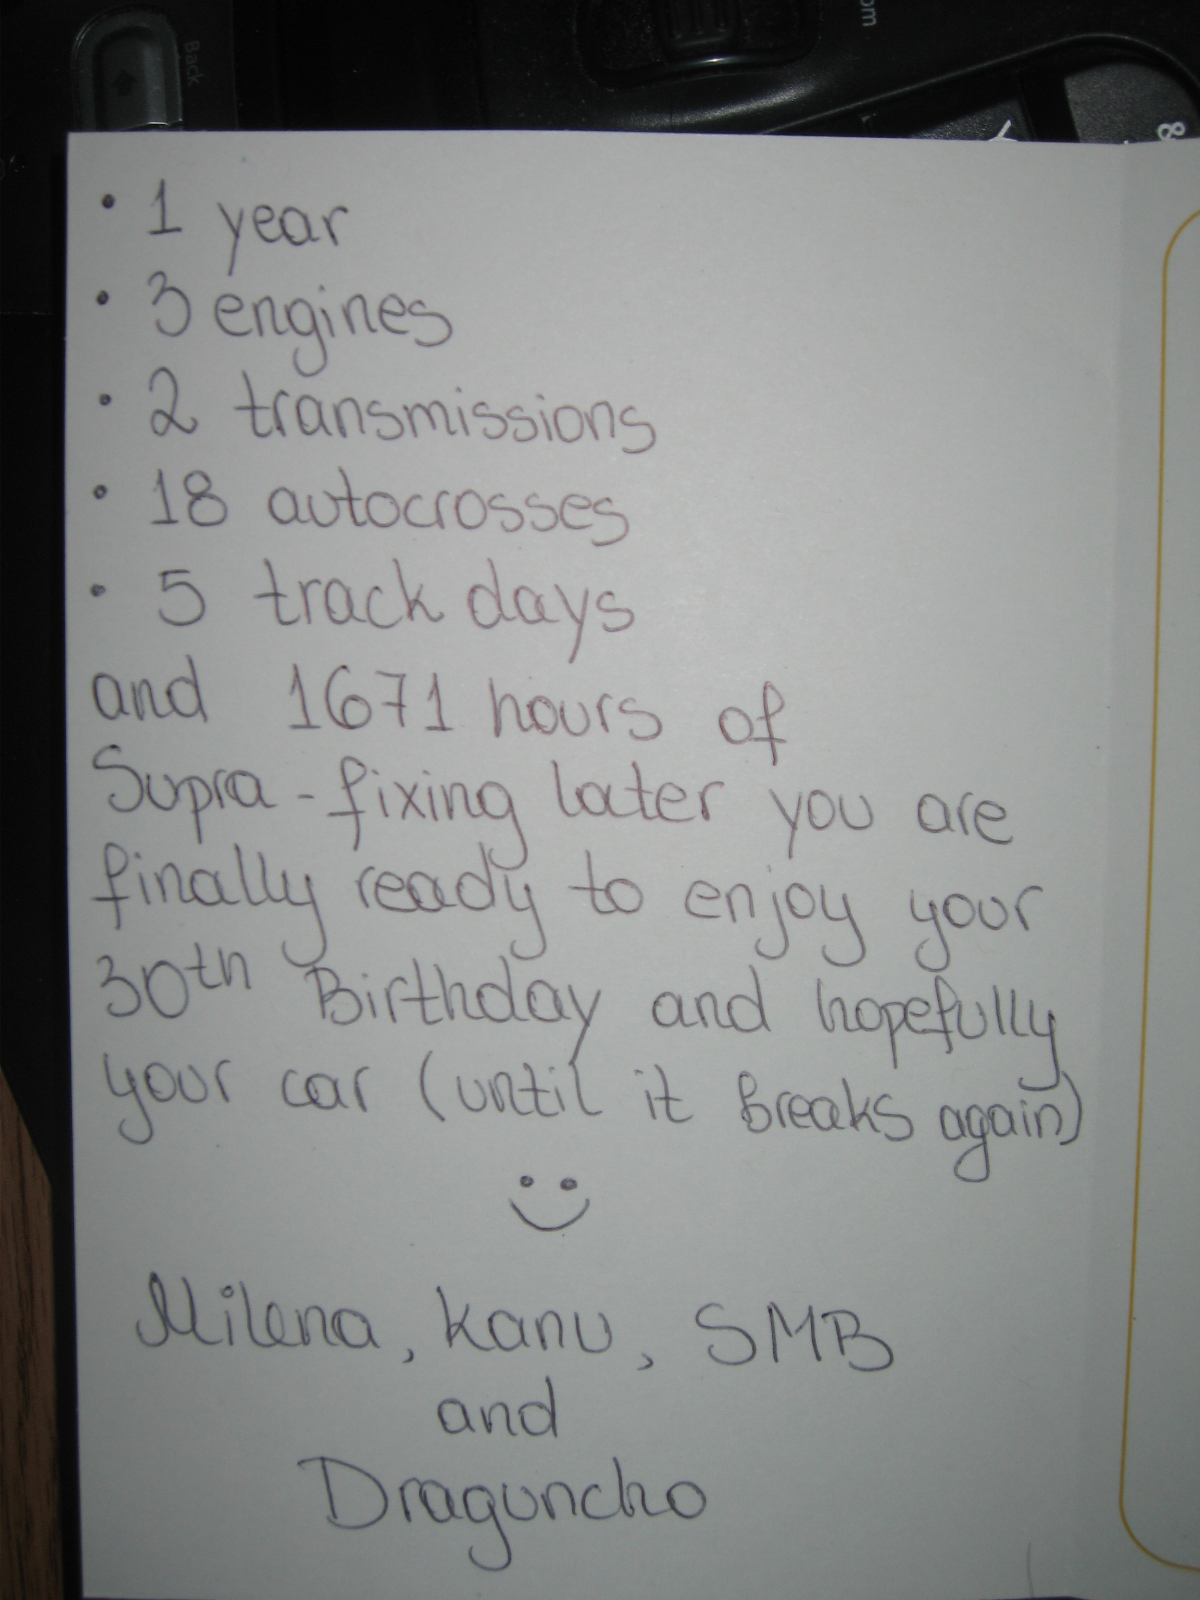 Back
om
Y
&
• 1 year
• 3 engines
• 2 transmissions
• 18 autocrosses
• 5 track days
and 1671 hours of
Supra-fixing later you are
finally ready to enjoy your
30th Birthday and hopefully
your car (until it breaks again)
Milena, Kanu, SMB
and
Draguncho